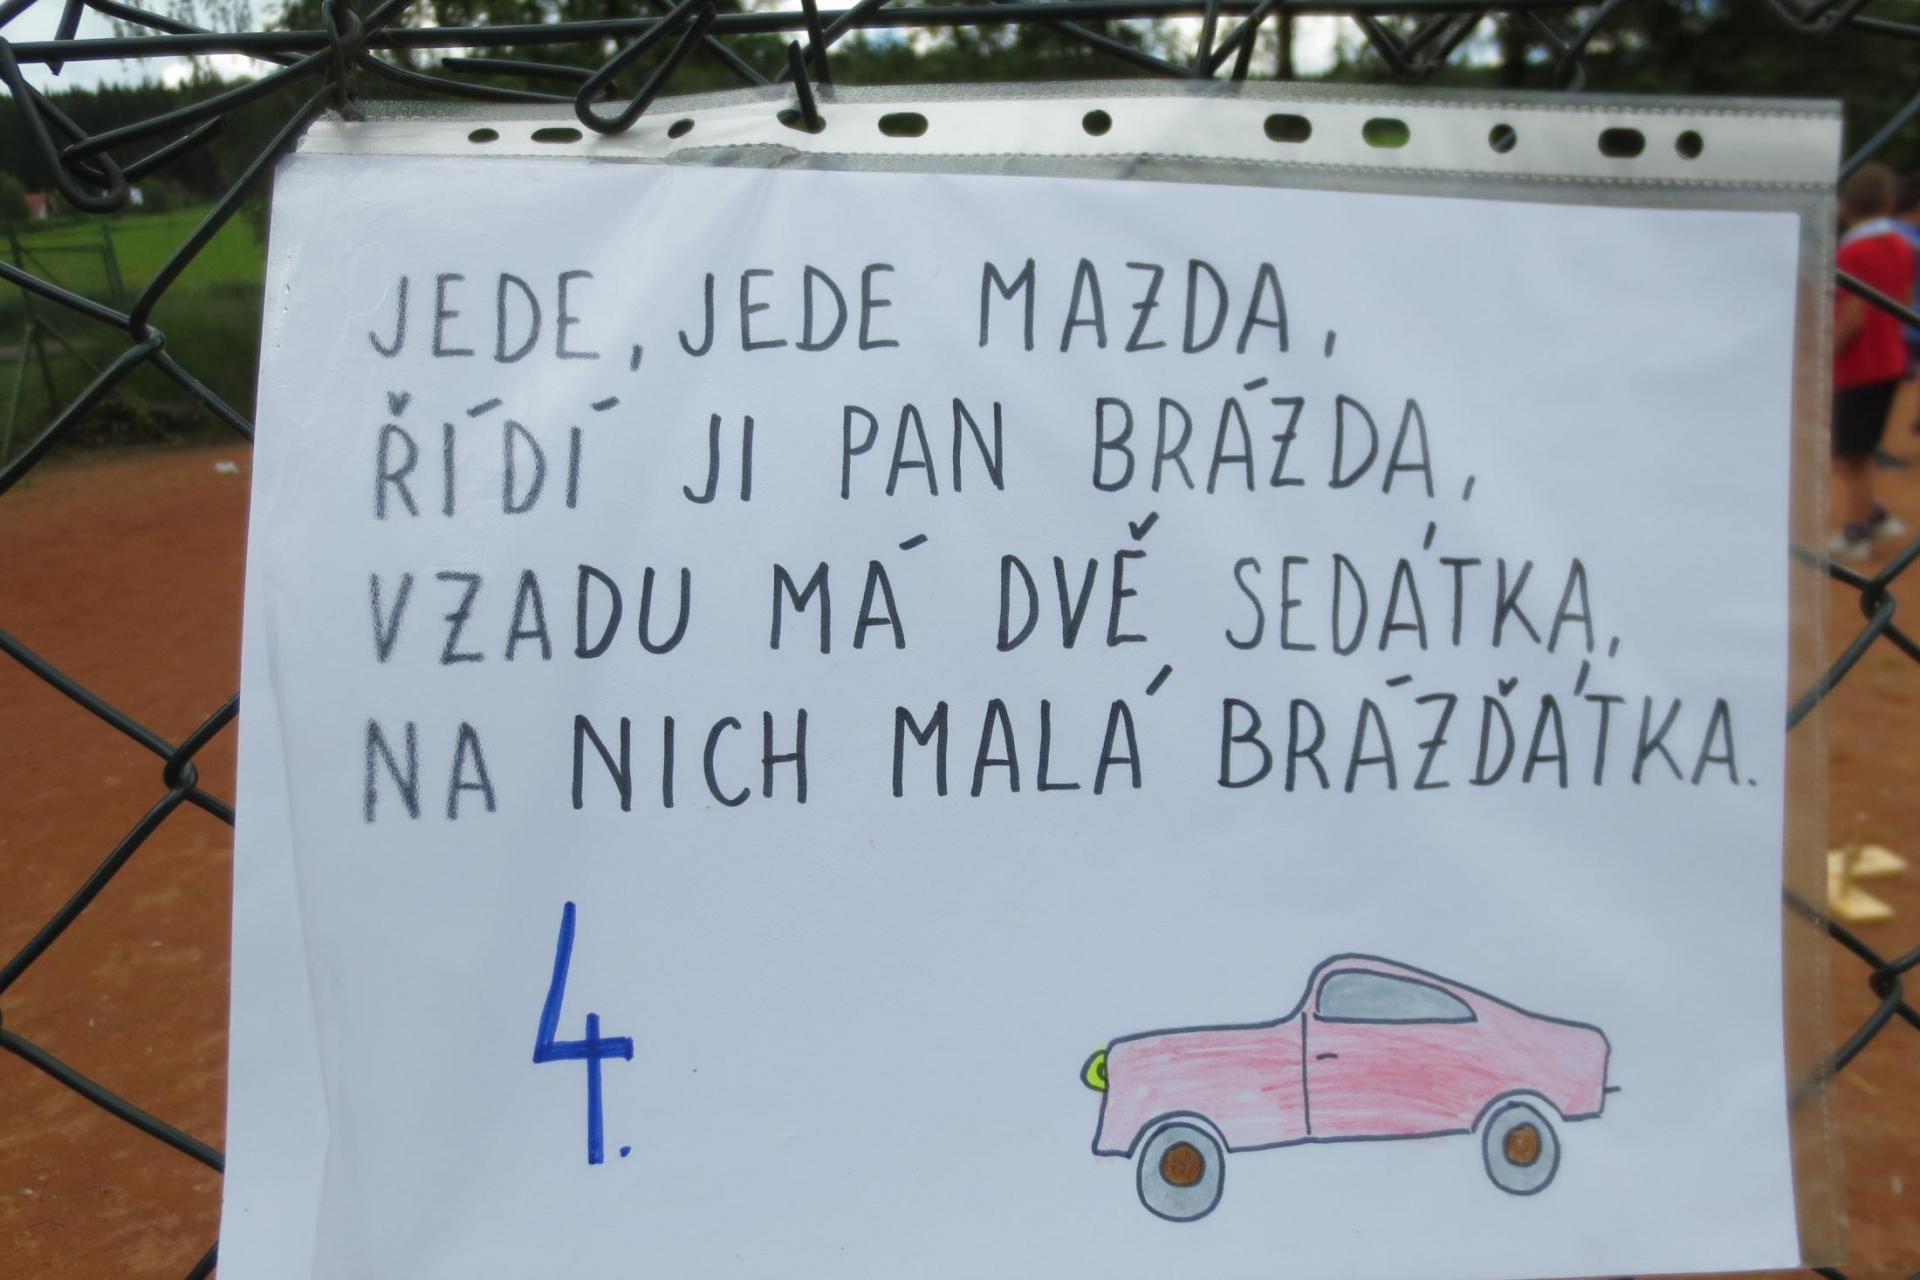 JEDE, JEDE MAZDA,
ŘÍDÍ JI PAN BRÁZDA,
VZADU MÁ DVĚ SEDÁTKA,
NA NICH MALÁ BRÁZĎÁTKA.
4.